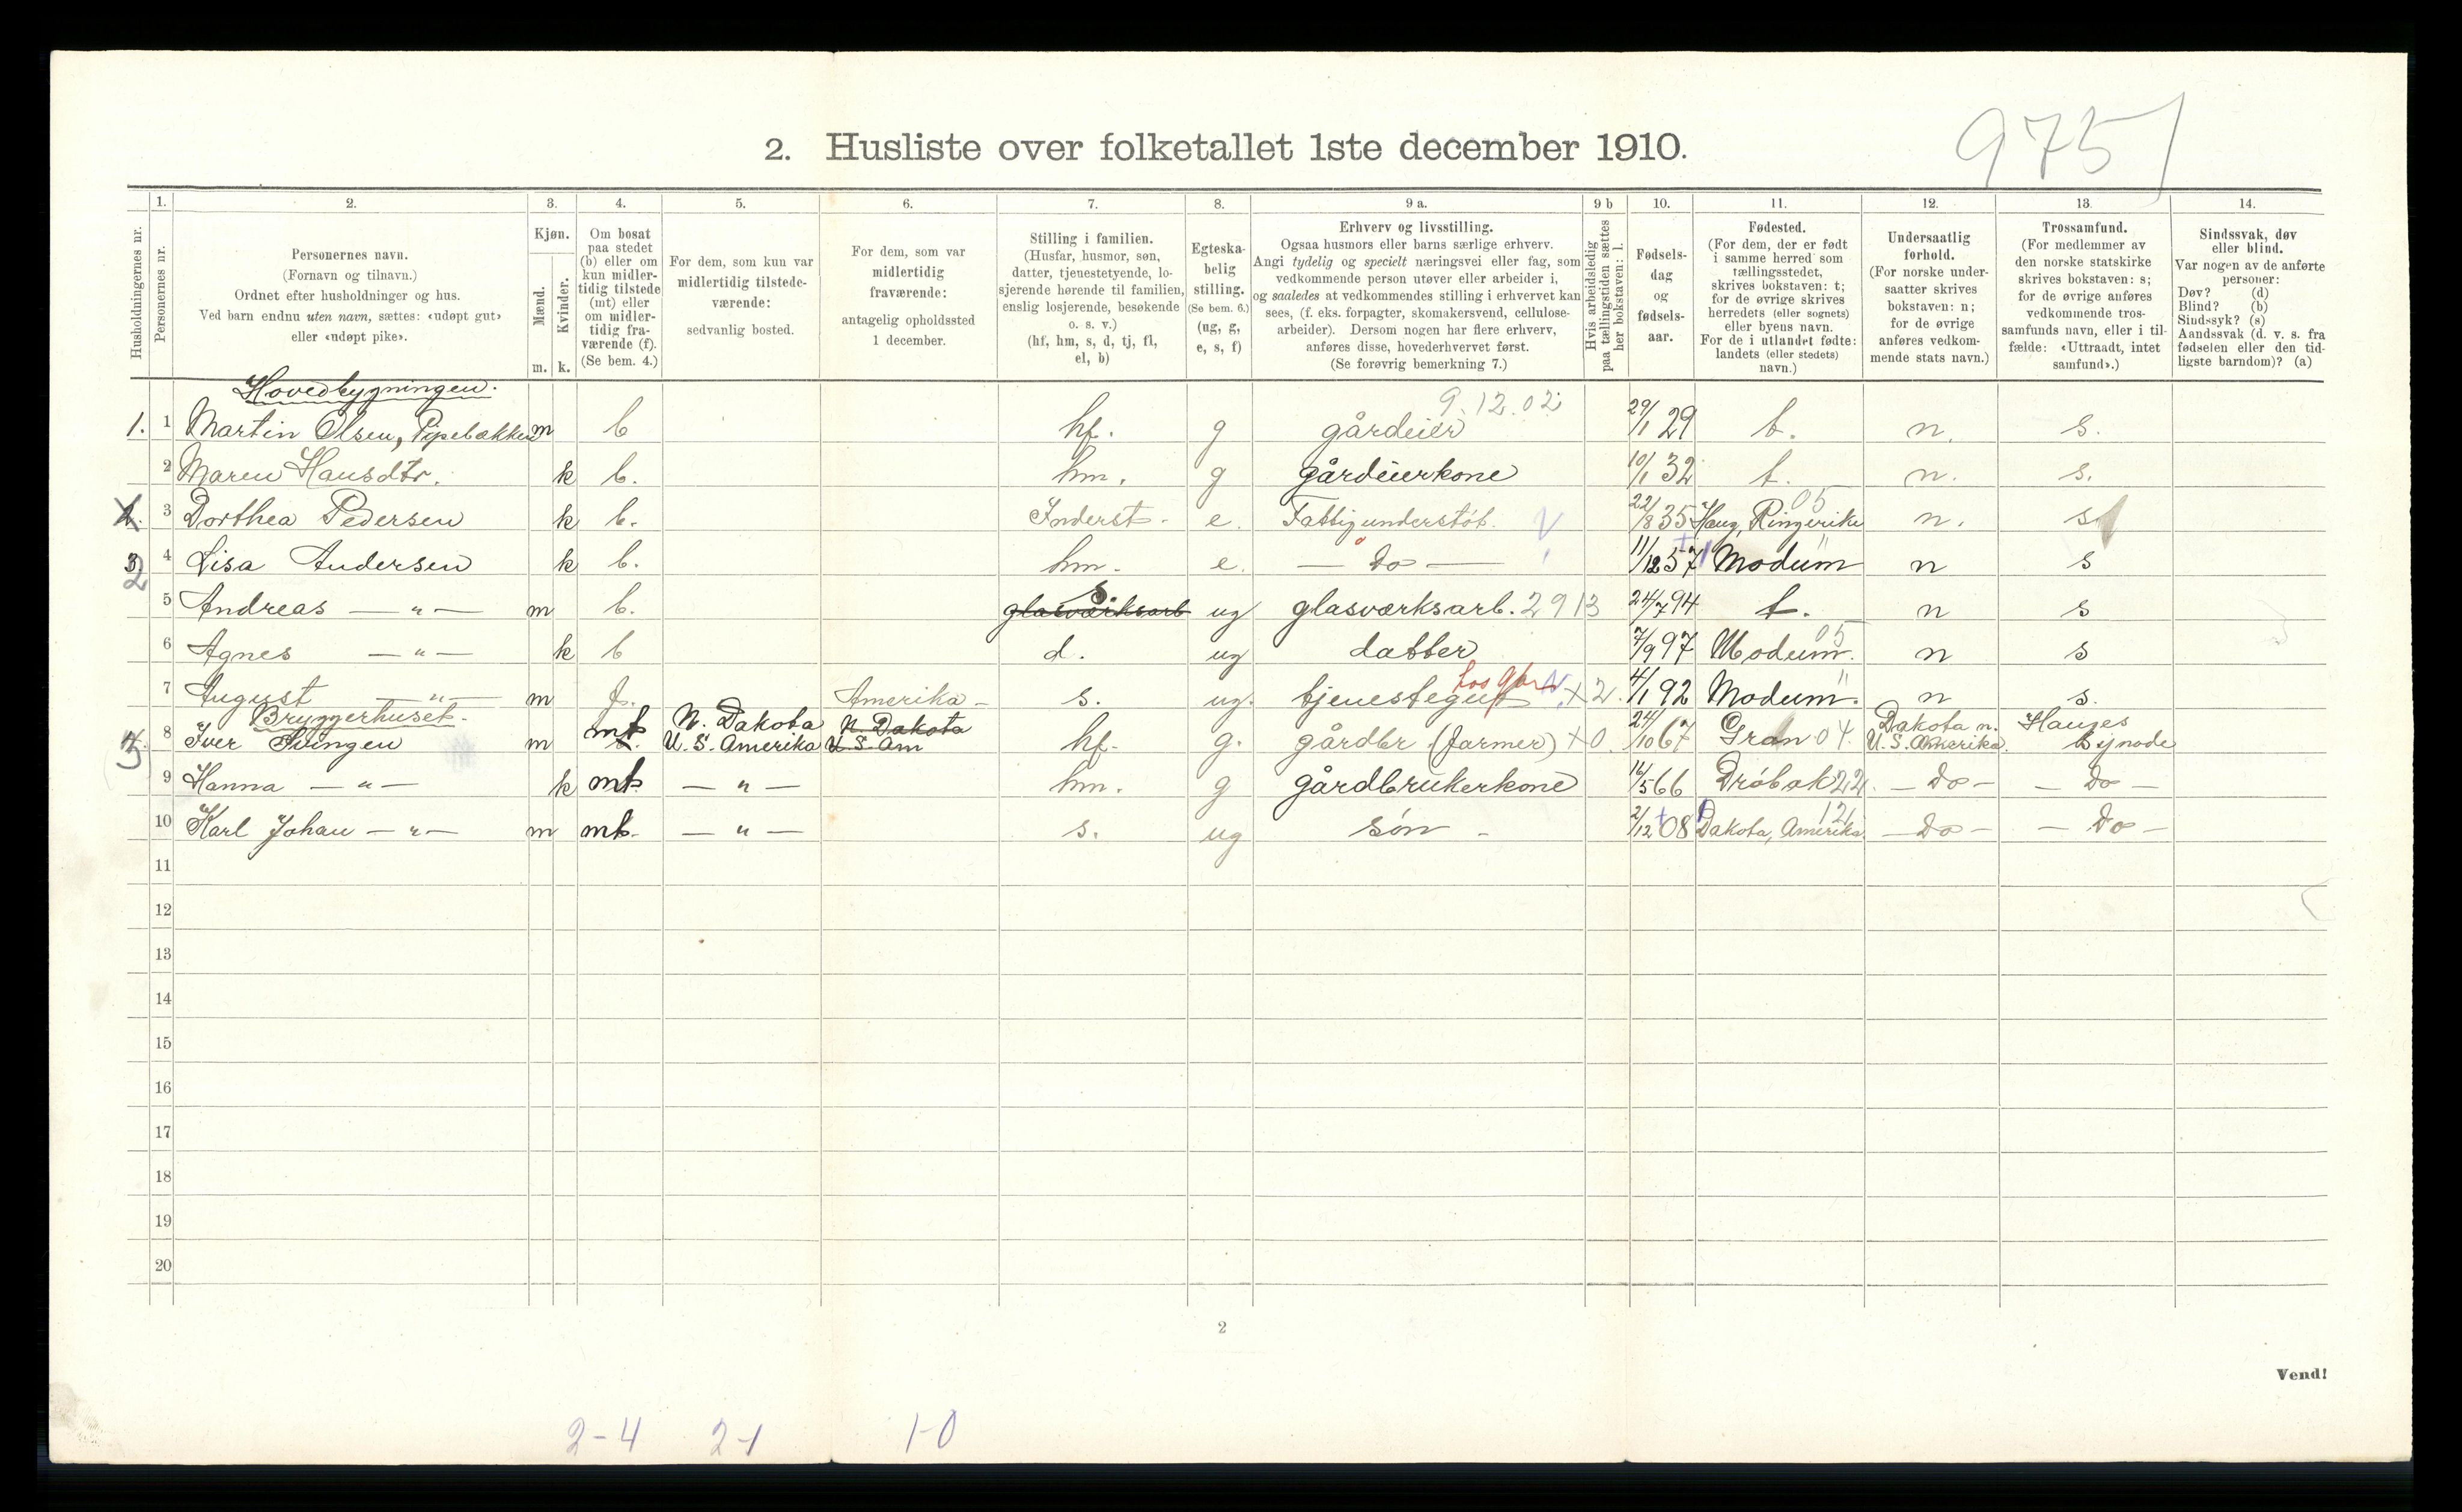 975
2. Husliste over folketallet 1ste december 1910.
Husholdningernes nr.
1. Personernes nr.
2. Personernes navn. (Fornavn og tilnavn.) Ordnet efter husholdninger og hus. Ved barn endnu uten navn, sættes: «udøpt gut» eller «udøpt pike».
3. Kjøn. Mænd. m. Kvinder. k.
4. Om bosat paa stedet (b) eller om kun midlertidig tilstede (mt) eller om midlertidig fraværende (f). (Se bem. 4.)
5. For dem, som kun var midlertidig tilstedeværende: sedvanlig bosted.
6. For dem, som var midlertidig fraværende: antagelig opholdssted 1 december.
7. Stilling i familien. (Husfar, husmor, søn, datter, tjenestetyende, losjerende hørende til familien, enslig losjerende, besøkende o. s. v.) (hf, hm, s, d, tj, fl, el, b)
8. Egteskabelig stilling. (Se bem. 6.) (ug, g, e, s, f)
9 a. Erhverv og livsstilling. Ogsaa husmors eller barns særlige erhverv. Angi tydelig og specielt næringsvei eller fag, som vedkommende person utøver eller arbeider i, og saaledes at vedkommendes stilling i erhvervet kan sees, (f. eks. forpagter, skomakersvend, cellulosearbeider). Dersom nogen har flere erhverv, anføres disse, hovederhvervet først. (Se forøvrig bemerkning 7.)
9 b Hvis arbeidsledig paa tællingstiden sættes her bokstaven: l.
10. Fødselsdag og fødselsaar.
11. Fødested. (For dem, der er født i samme herred som tællingsstedet, skrives bokstaven: t; for de øvrige skrives herredets (eller sognets) eller byens navn. For de i utlandet fødte: landets (eller stedets) navn.)
12. Undersaatlig forhold. (For norske undersaatter skrives bokstaven: n; for de øvrige anføres vedkommende stats navn.)
13. Trossamfund. (For medlemmer av den norske statskirke skrives bokstaven: s; for de øvrige anføres vedkommende trossamfunds navn, eller i tilfælde: «Uttraadt, intet samfund».)
14. Sindssvak, døv eller blind. Var nogen av de anførte personer: Døv? (d) Blind? (b) Sindssyk? (s) Aandssvak (d. v. s. fra fødselen eller den tidligste barndom)? (a)
Hovedbygningen.
9.12.02
1. 1 Martin Olsen, Pipebakken m b hf. g gårdeier 29/1 29 t. n. s.
2 Maren Hansdtr. k b. hm. g gårdeierkone 10/1 32 t. n. s.
2. 3 Dorthea Pedersen k b. Inderst. e. Fattigunderstöt. 22/8 35 Haug, Ringerike 05 n. s
3 2 4 Lisa Andersen k b. hm. e. — Do — 11/12 57 Modum n s
5 Andreas — „ — m b. glasværksarb s. ug glasværksarb. 2913 24/7 94 t. n s
6 Agnes — „ — k b d. ug datter 7/9 97 Modum. 05 n s
7 August — „ — m f. Amerika - s. ug. tjenestegut hos gbr + 2. 4/1 92 Modum n s.
Bryggerhuset.
4. 3 8 Iver Svingen m mt N. Dakota U.S. Amerika N. Dakota U.S. Am hf. g. gårdbr (farmer) + 0. 24/10 67 Gran 04. Dakota n. U.S. Amerika. Hauges Synode
9 Hanna — „ — k mt. — „ — hm. g gårdbrukerkone 16/5 66 Dröbak 22. — Do — — Do —
10 Karl Johan — „ — m mt. — „ — s. ug sön - 2/12 08 Dakota, Amerika. 121 — Do — — Do —
11
12
13
14
15
16
17
18
19
20
2
Vend!
2-4 2-1 1-0